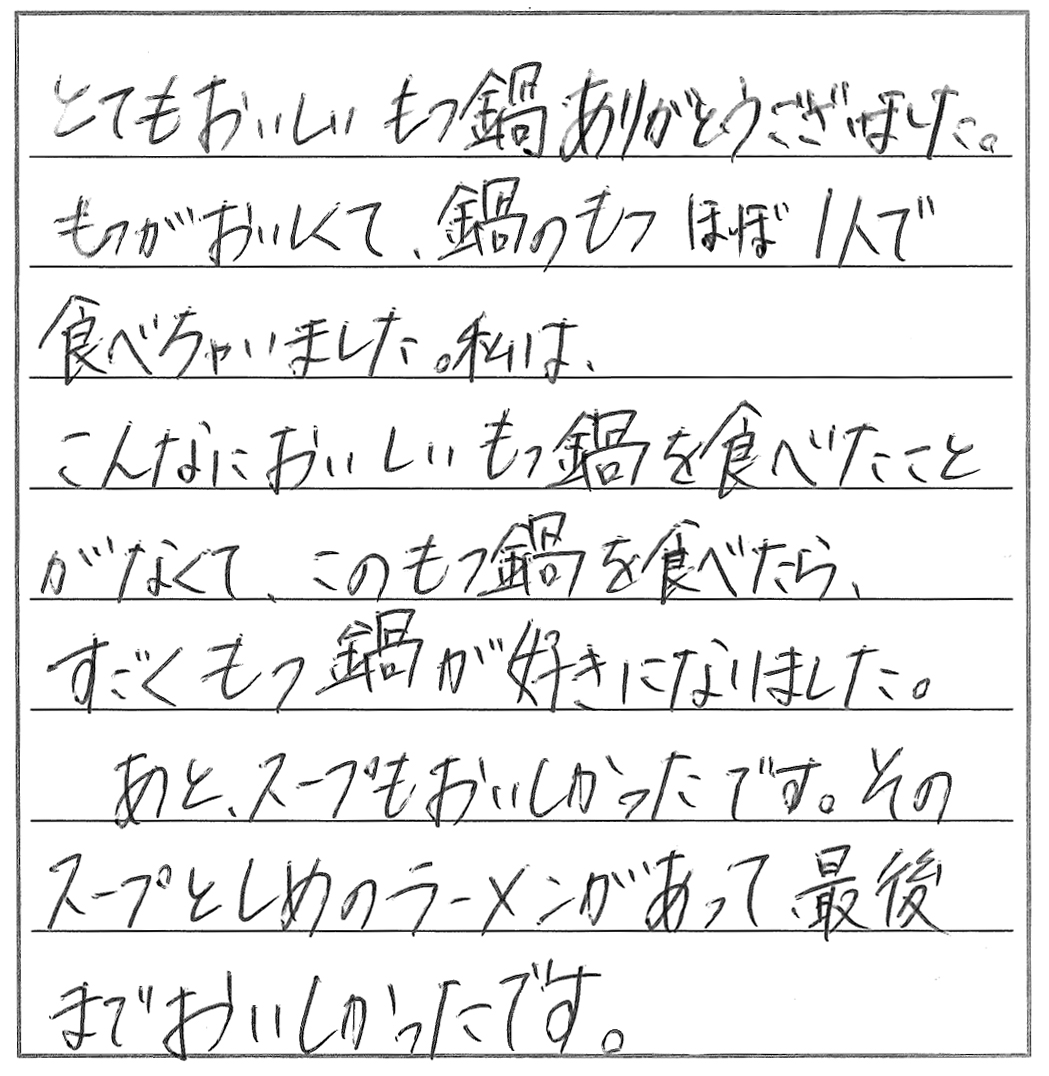 とてもおいしいもつ鍋ありがとうございました。
もつがおいしくて、鍋のもつほぼ1人で
食べちゃいました。私は、
こんなにおいしいもつ鍋を食べたこと
がなくて、このもつ鍋を食べたら、
すごくもつ鍋が好きになりました。
あと、スープもおいしかったです。その
スープとしめのラーメンがあって、最後
までおいしかったです。